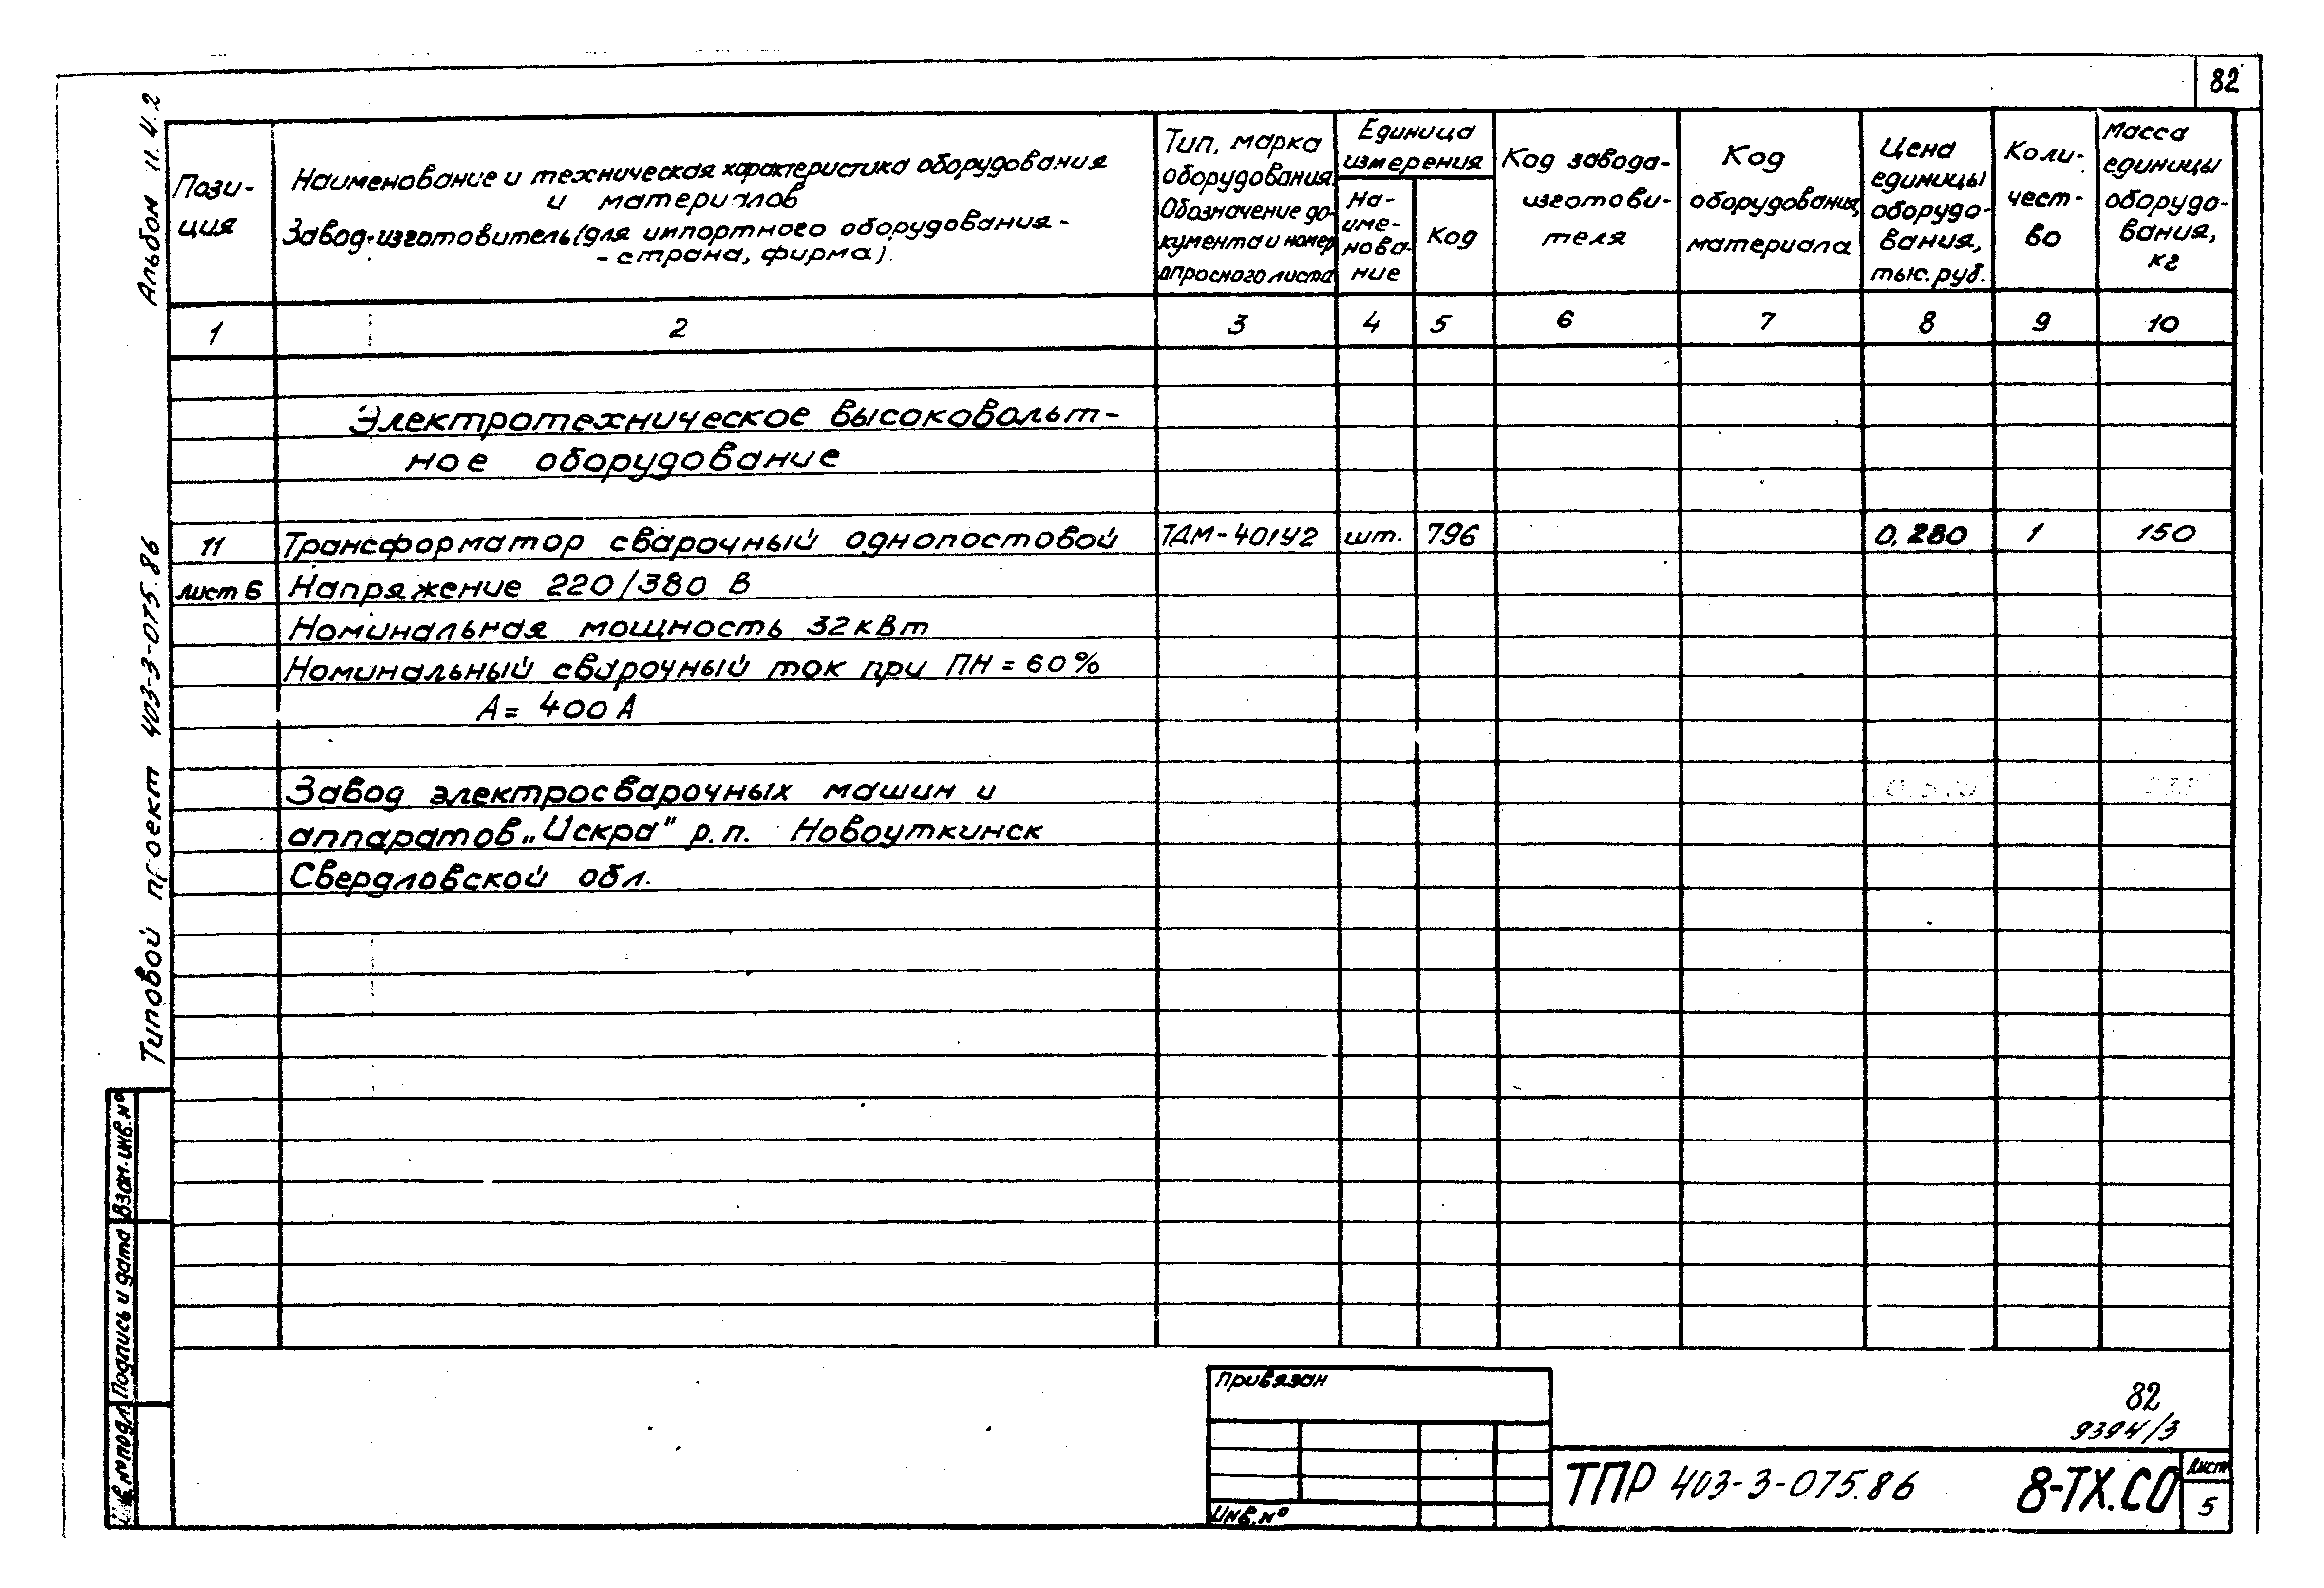 82
Альбом 11.4.2
Типовой проект 403-3-075.86
Пози-
ция
Наименование и техническая характеристика оборудования
и материалов
Завод-изготовитель (для импортного оборудования -
- страна, фирма).
Тип, марка
оборудования.
Обозначение до-
кумента и номер
опросного листа
Единица
измерения
На-
име-
нова-
ние
Код
Код завода-
изготови-
теля
Код
оборудования,
материала
Цена
единицы
оборудо-
вания,
тыс. руб.
Коли-
чест-
во
Масса
единицы
оборудо-
вания,
кг
1 2 3 4 5 6 7 8 9 10
Электротехническое высоковольт-
ное оборудование
11 Трансформатор сварочный однопостовой ТДМ-401У2 шт. 796 0,280 1 150
лист 6 Напряжение 220/380 В
Номинальная мощность 32 кВт
Номинальный сварочный ток при ПН = 60%
А = 400 А
Завод электросварочных машин и
аппаратов „Искра" р.п. Новоуткинск
Свердловской обл.
Взам. инв. №
Подпись и дата
Инв. № подл.
Привязан
Инв. №
82
9394/3
ТПР 403-3-075.86 8-ТХ.СО
Лист
5